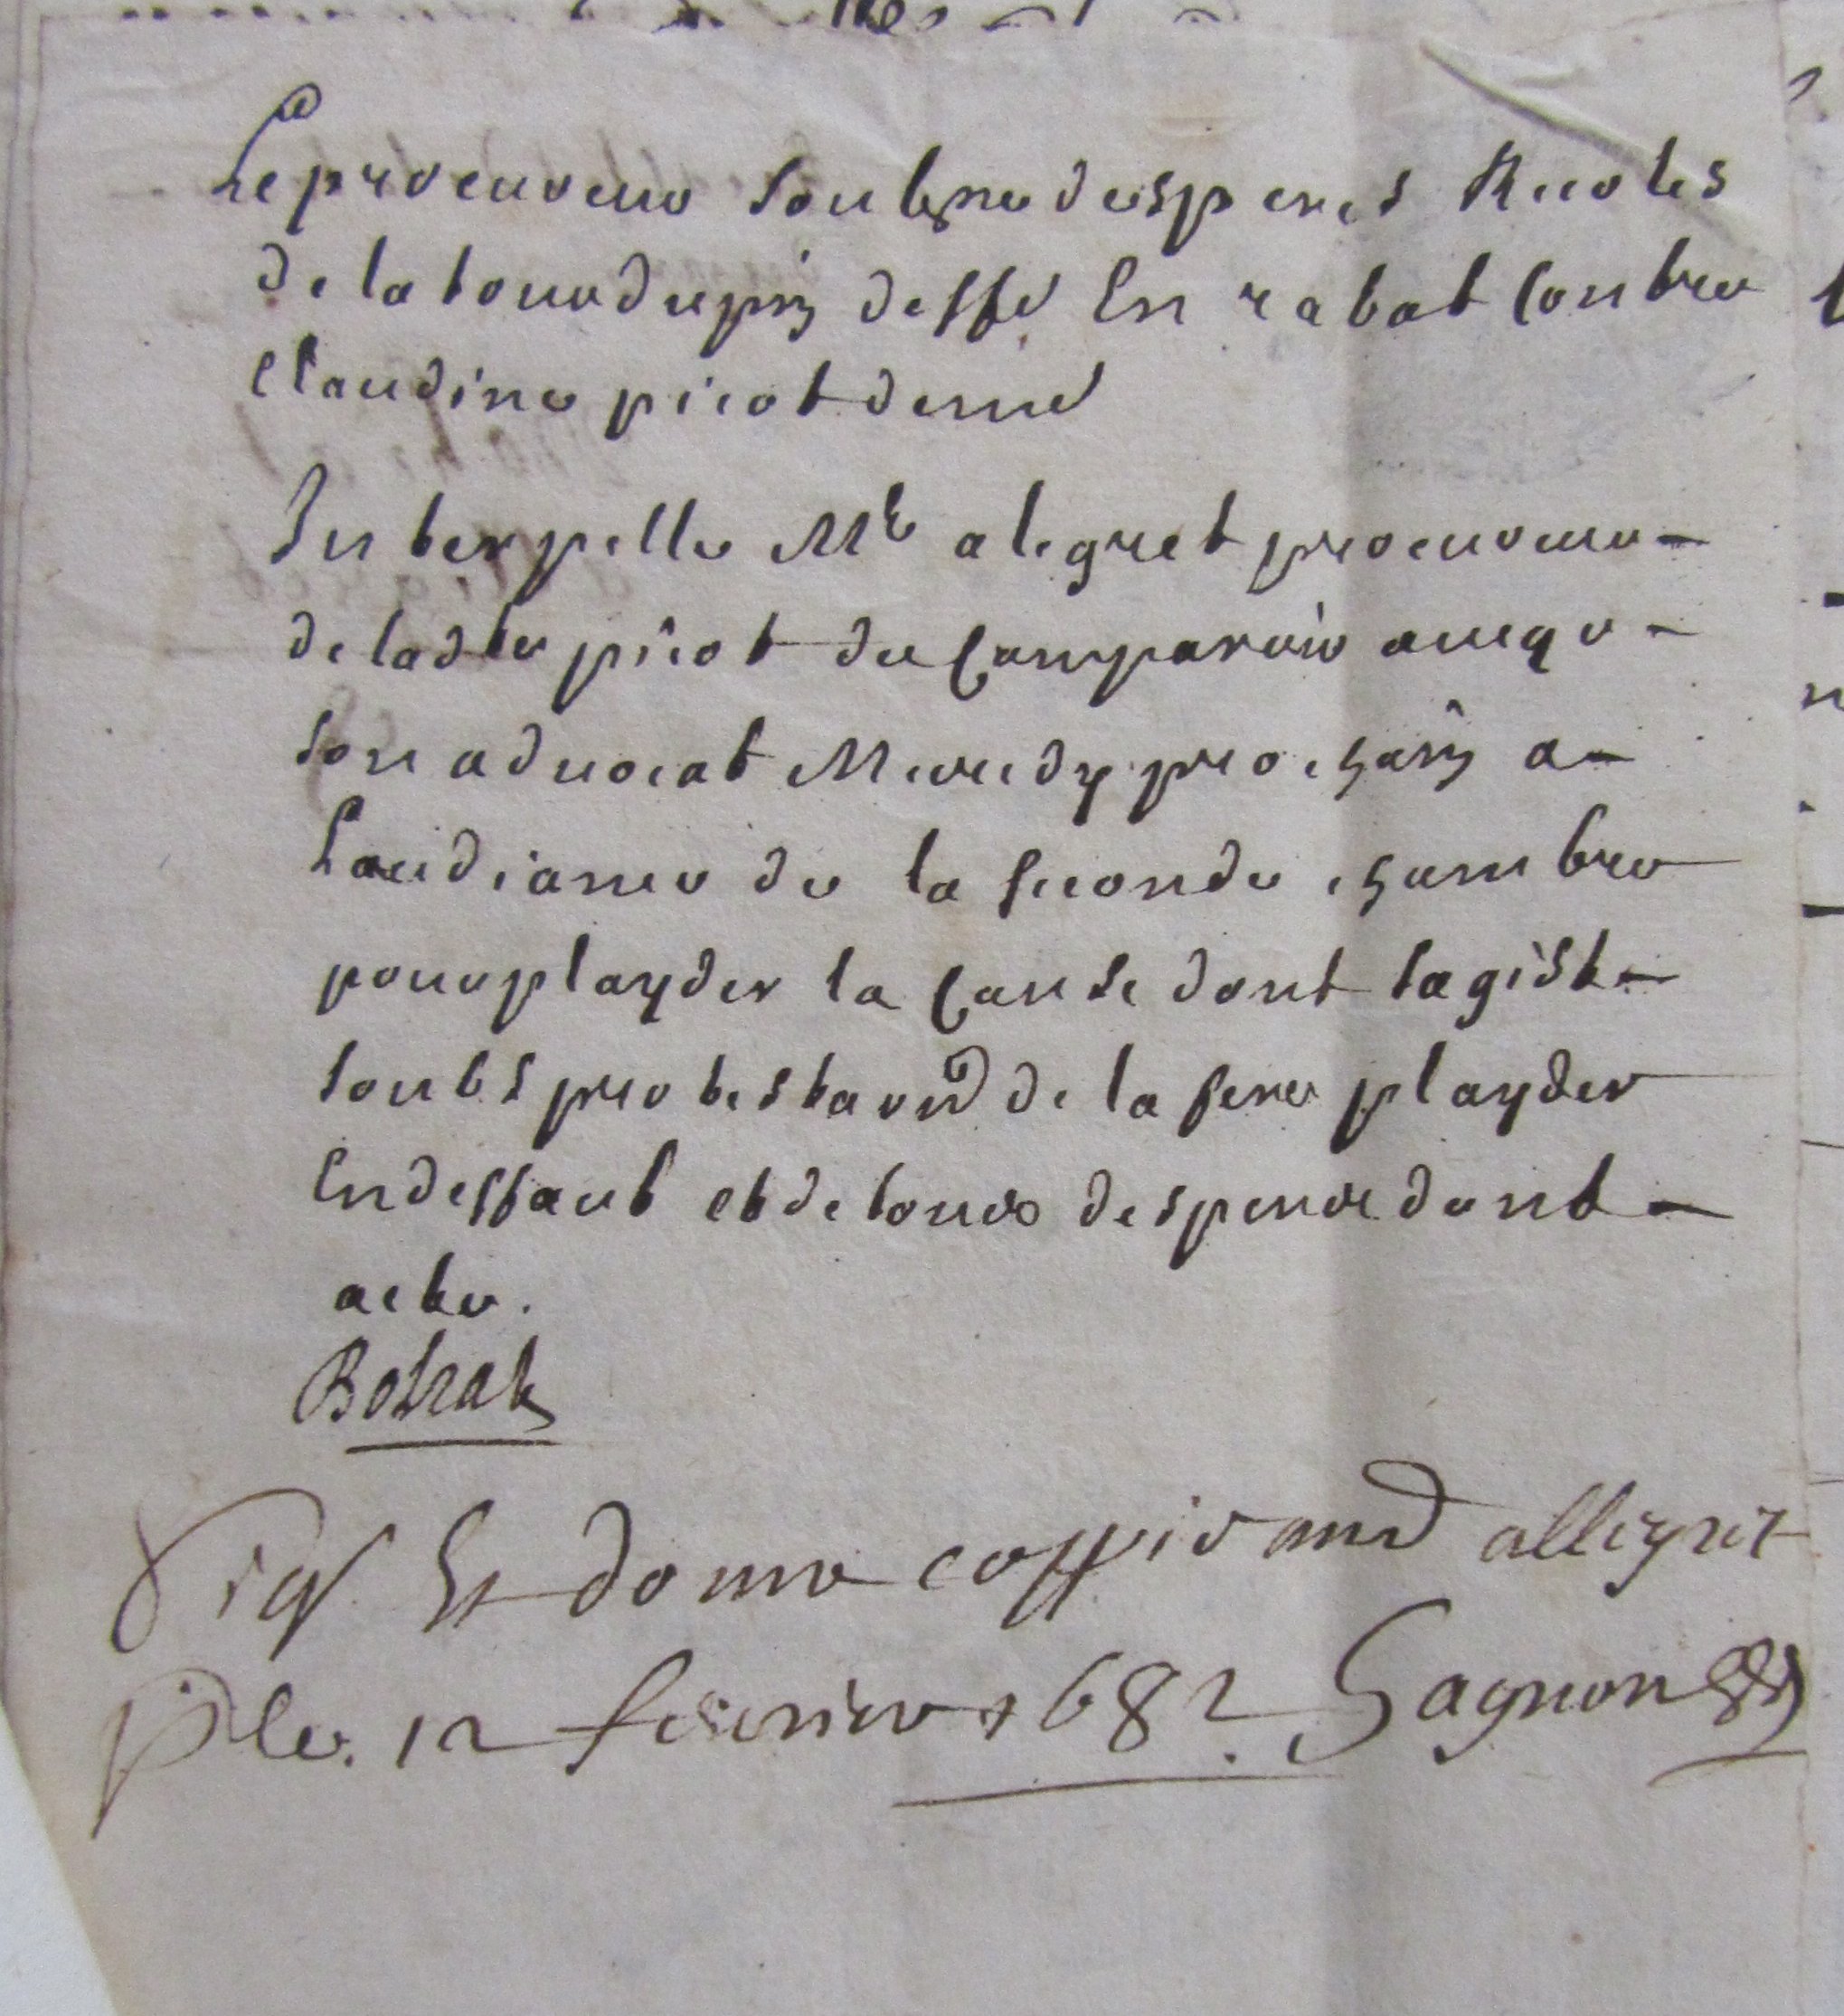 Le procureur soubsne des peres Recoles
de la tour du pin deffr En rabat Contre
Claudine picot demd
Interpelle Me alegret procureur
de ladte picot de Comparoir avecq
son advocat Mercredy prochain a
Laudiance de la seconde chambre
pour playder la Cause dont sagist
soubs protestaon de la fere playder
En deffaut et de tours despens dont
acte.
Botrat
Sigé Et donné coppie a md allegret
P le. 12 febvrier 1682. Gagnon